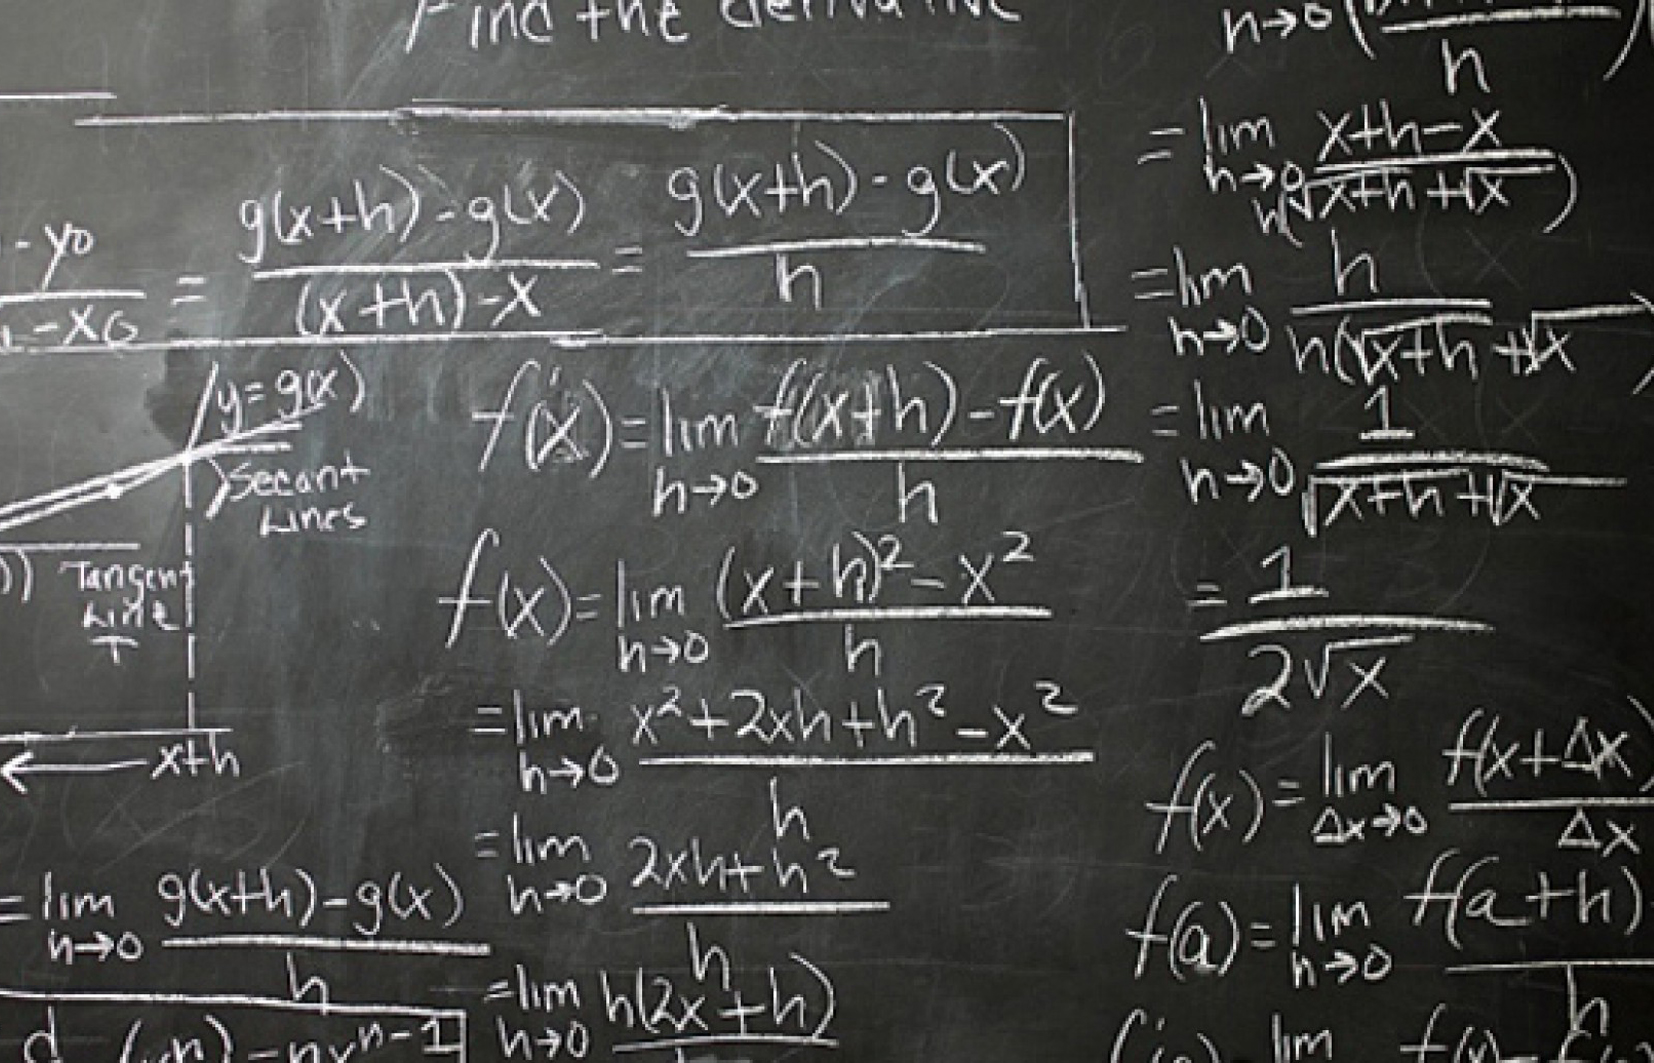 Find the derivative
- y0 / - x0 = g(x+h) - g(x) / (x+h) - x = g(x+h) - g(x) / h
y = g(x)
Secant
Lines
Tangent
Line
T
x+h
= lim h→0 g(x+h) - g(x) / h
d (xn) = nx^n-1
f'(x) = lim h→0 f(x+h) - f(x) / h
f(x) = lim h→0 (x+h)² - x² / h
= lim h→0 x² + 2xh + h² - x² / h
= lim h→0 2xh + h² / h
= lim h→0 h(2x + h)
h→0 h
= lim h→0 x+h-x / h(√x+h + √x)
= lim h→0 h / h(√x+h + √x)
= lim h→0 1 / √x+h + √x
= 1 / 2√x
f(x) = lim Δx→0 f(x+Δx) / Δx
f(a) = lim h→0 f(a+h) / h
lim